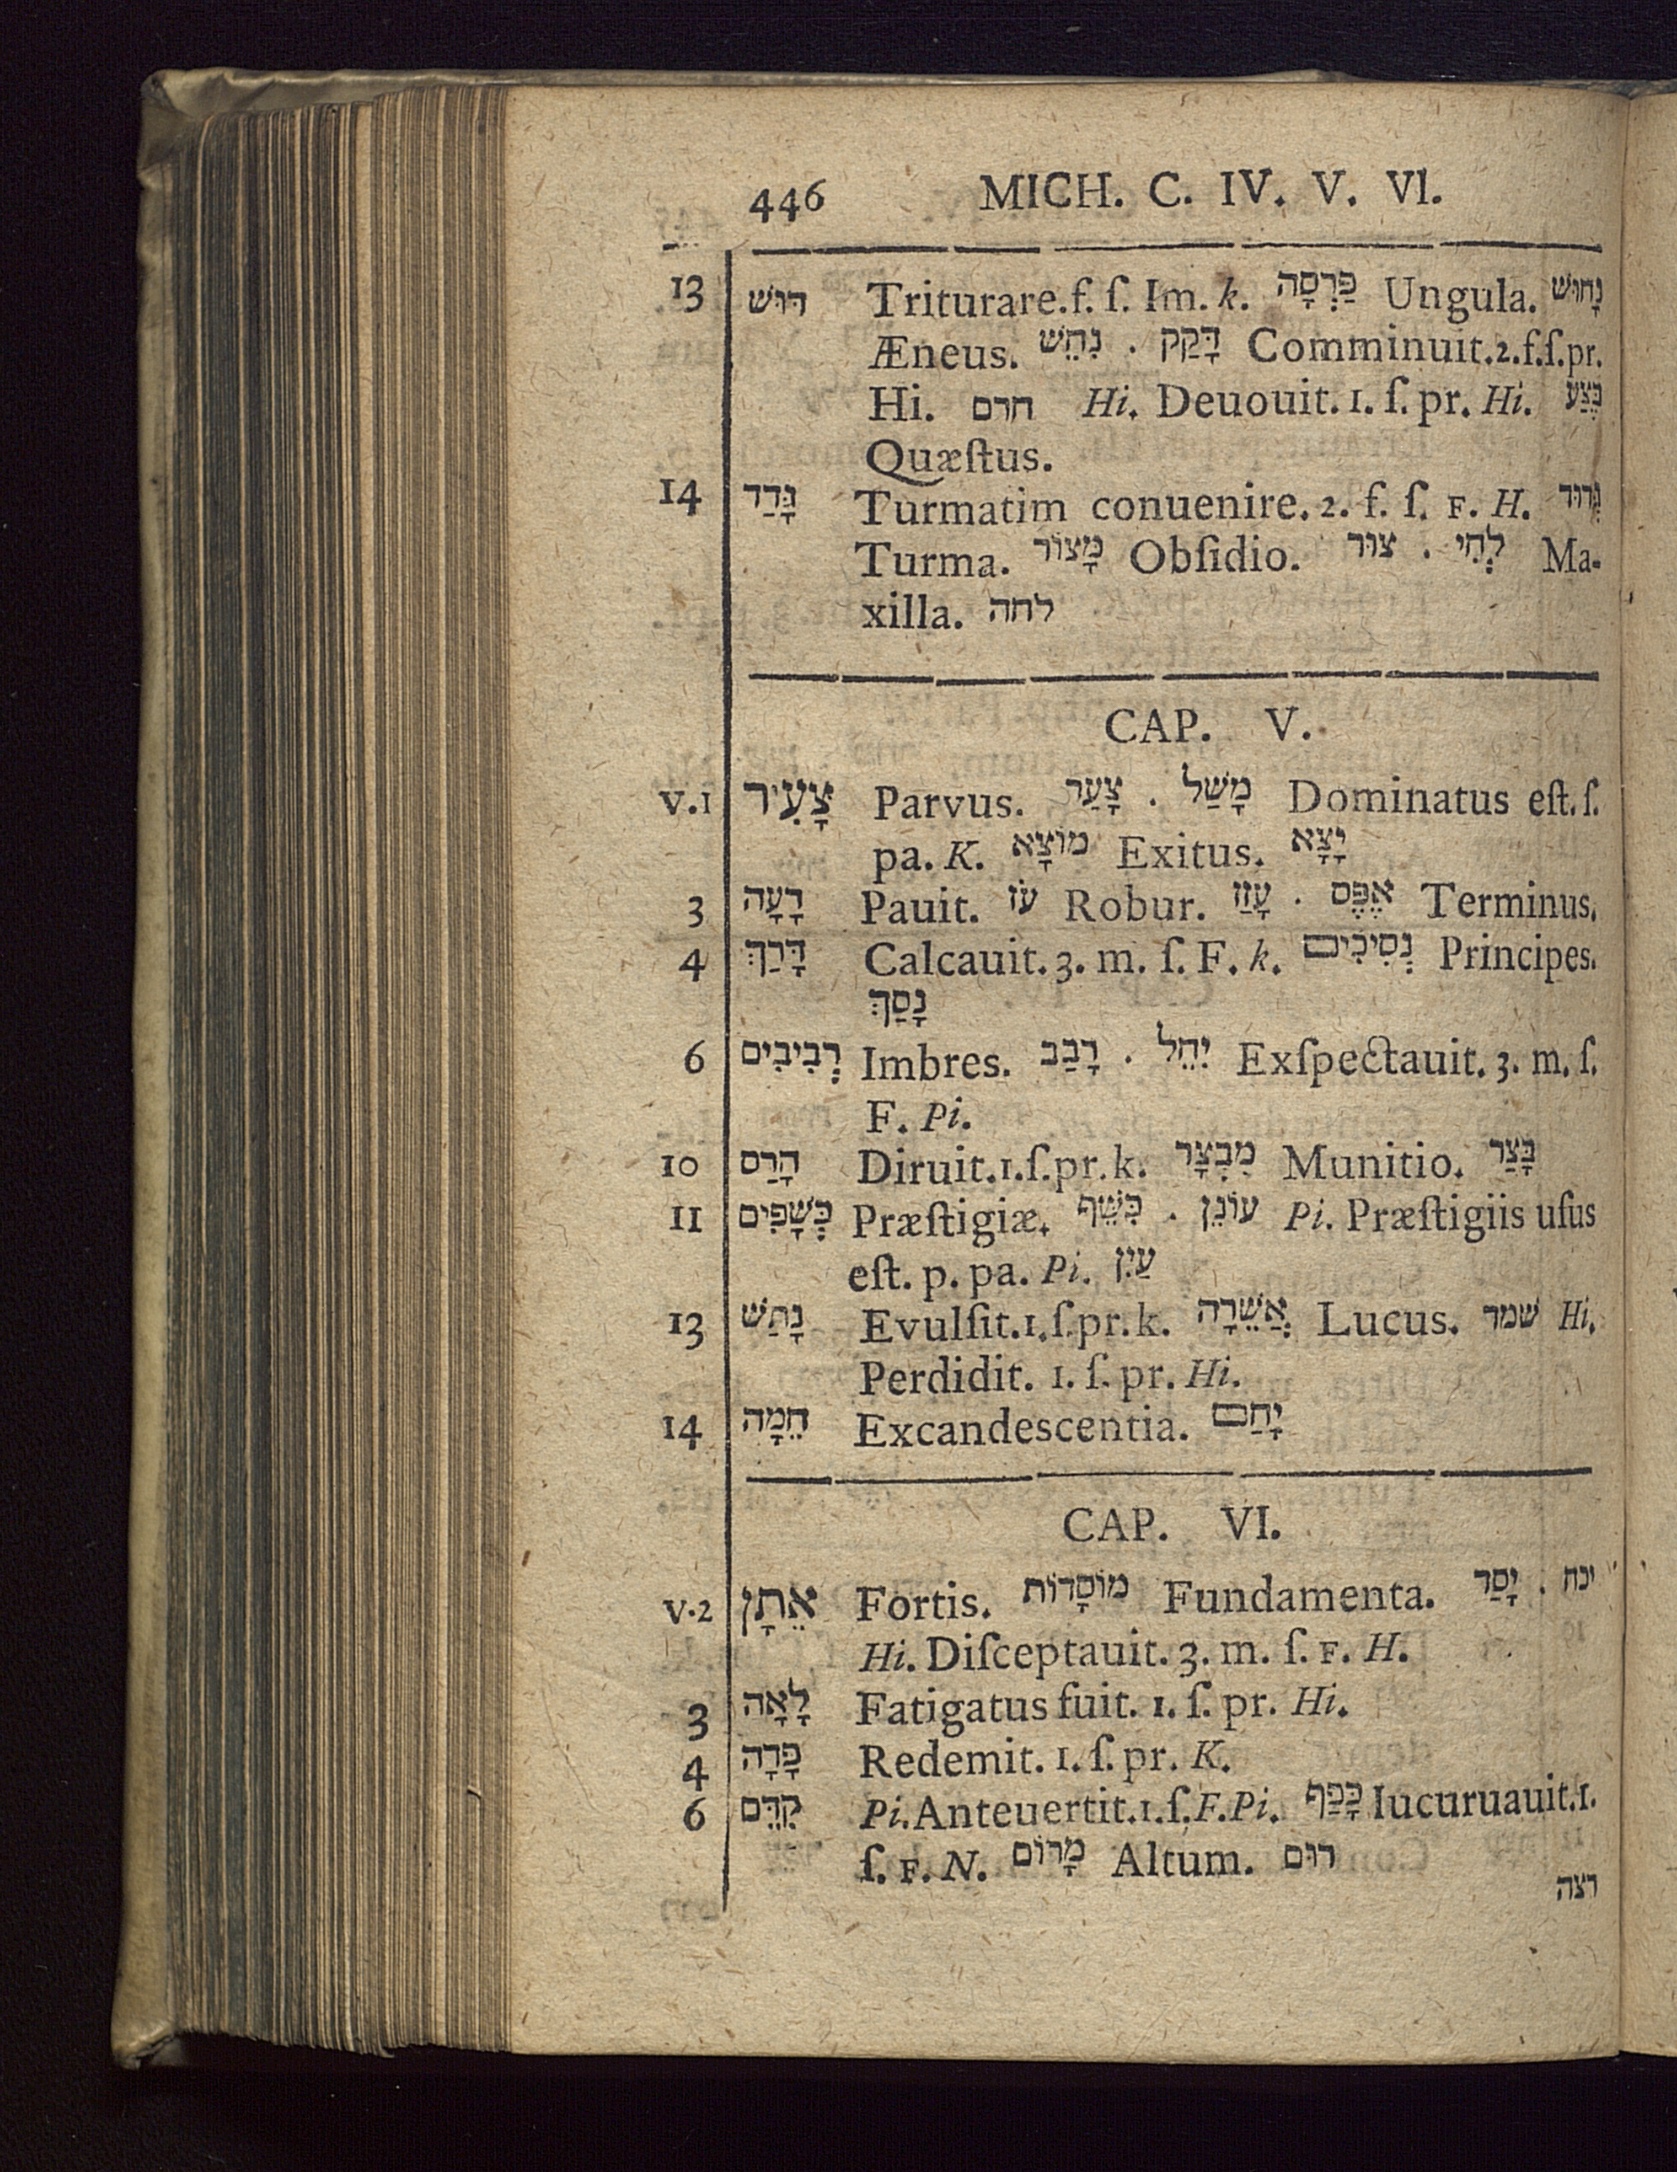 446 MICH. C. IV. V. VI.
13 דּוּשׁ Triturare. f. ſ. Im. k. פַּרְסָה Ungula. נָחוּשׁ
Æneus. נִחֵשׁ . דָּקַק Comminuit. 2. f. ſ. pr.
Hi. חרם Hi. Deuouit. 1. ſ. pr. Hi. בֶּצַע
Quæſtus.
14 גָּדַד Turmatim conuenire. 2. f. ſ. F. H. גְּדוּד
Turma. מָצוֹר Obſidio. צוּר . לְחִי Ma-
xilla. לחה
CAP. V.
V.1 צָעִיר Parvus. צָעַר . מָשַׁל Dominatus eſt. ſ.
pa. K. מוֹצָא Exitus. יָצָא
3 רָעָה Pauit. עֹז Robur. עָזַז . אֶפֶס Terminus.
4 דָּרַךְ Calcauit. 3. m. ſ. F. k. נְסִיכִים Principes.
נָסַךְ
6 רְבִיבִים Imbres. רָבַב . יִחֵל Exſpectauit. 3. m. ſ.
F. Pi.
10 הָרַס Diruit. 1. ſ. pr. k. מִבְצָר Munitio. בָּצַר
11 כְּשָׁפִים Præſtigiæ. כִּשֵּׁף . עוֹנֵן Pi. Præſtigiis uſus
eſt. p. pa. Pi. עַיִן
13 נָתַשׁ Evulſit. 1. ſ. pr. k. אֲשֵׁרָה Lucus. שׁמד Hi.
Perdidit. 1. ſ. pr. Hi.
14 חֵמָה Excandescentia. יָחַם
CAP. VI.
V.2 אֵתָן Fortis. מוֹסָדוֹת Fundamenta. יָסַד . יכח
Hi. Diſceptauit. 3. m. ſ. F. H.
3 לָאָה Fatigatus fuit. 1. ſ. pr. Hi.
4 פָּדָה Redemit. 1. ſ. pr. K.
6 קִדֵּם Pi. Anteuertit. 1. ſ. F. Pi. כָּפַף Iucuruauit. 1.
ſ. F. N. מָרוֹם Altum. רוּם
רצה